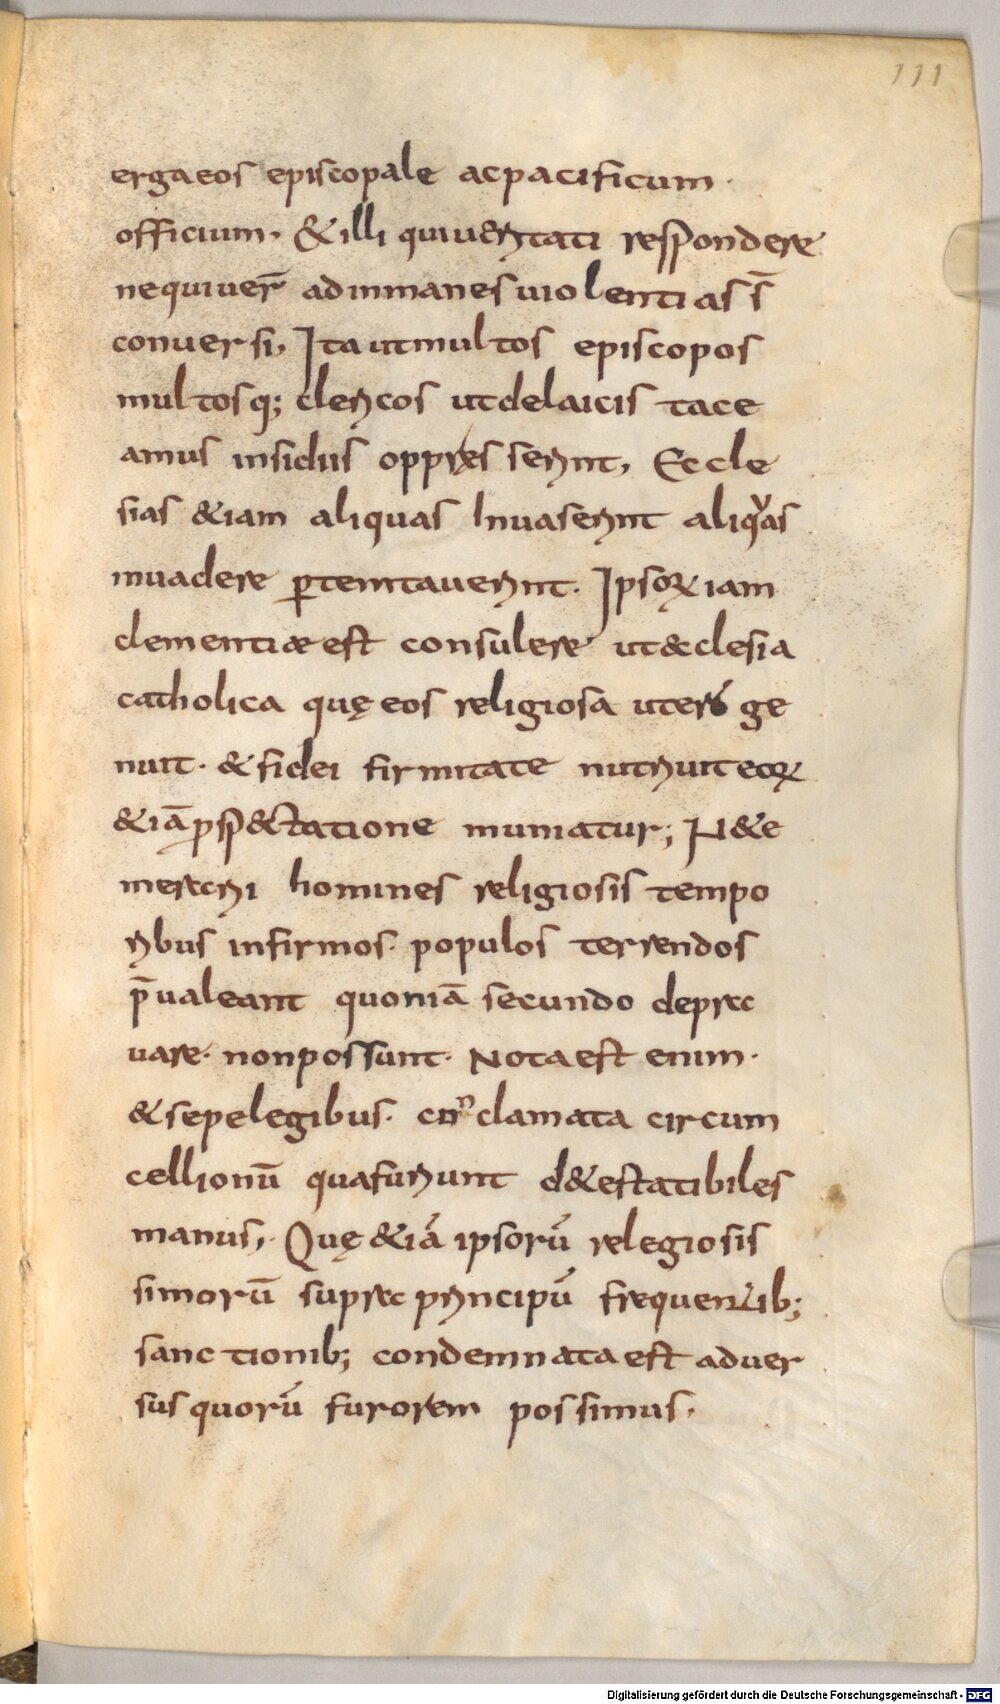 111
erga eos episcopale ac pacificum ·
officium· & illi qui ueritati respondere
nequiuer̄ ad inmanes uiolentias s̄
conuersi, Ita ut multos episcopos
multosq; clericos ut de laicis tace
amus insidiis oppres serint, Eccle
sias &iam aliquas Inuaserint aliqͮas
inuadere ꝑtemtauerint· Ipsoꝝ iam
clementiæ est consulere ut æclesia
catholica quę eos religiosa utero ge
nuit· & fidei firmitate nutriuit eoꝝ
&iā ꝓsp&ctatione muniatur; N& e
merarii homines religiosis tempo
ribus infirmos· populos terrendos
p̄ualeant quoniā secundo deprec
uare· non possunt· Nota est enim·
& sepe legibus· con clamata circum
cellionū qua furiunt d&estatibiles
manus, Quę &iā ipsorū relegiosis
simorū suprec principū frequentib;
sanctionib; condemnata est aduer
sus quorū furorem possimus·
Digitalisierung gefördert durch die Deutsche Forschungsgemeinschaft - DFG